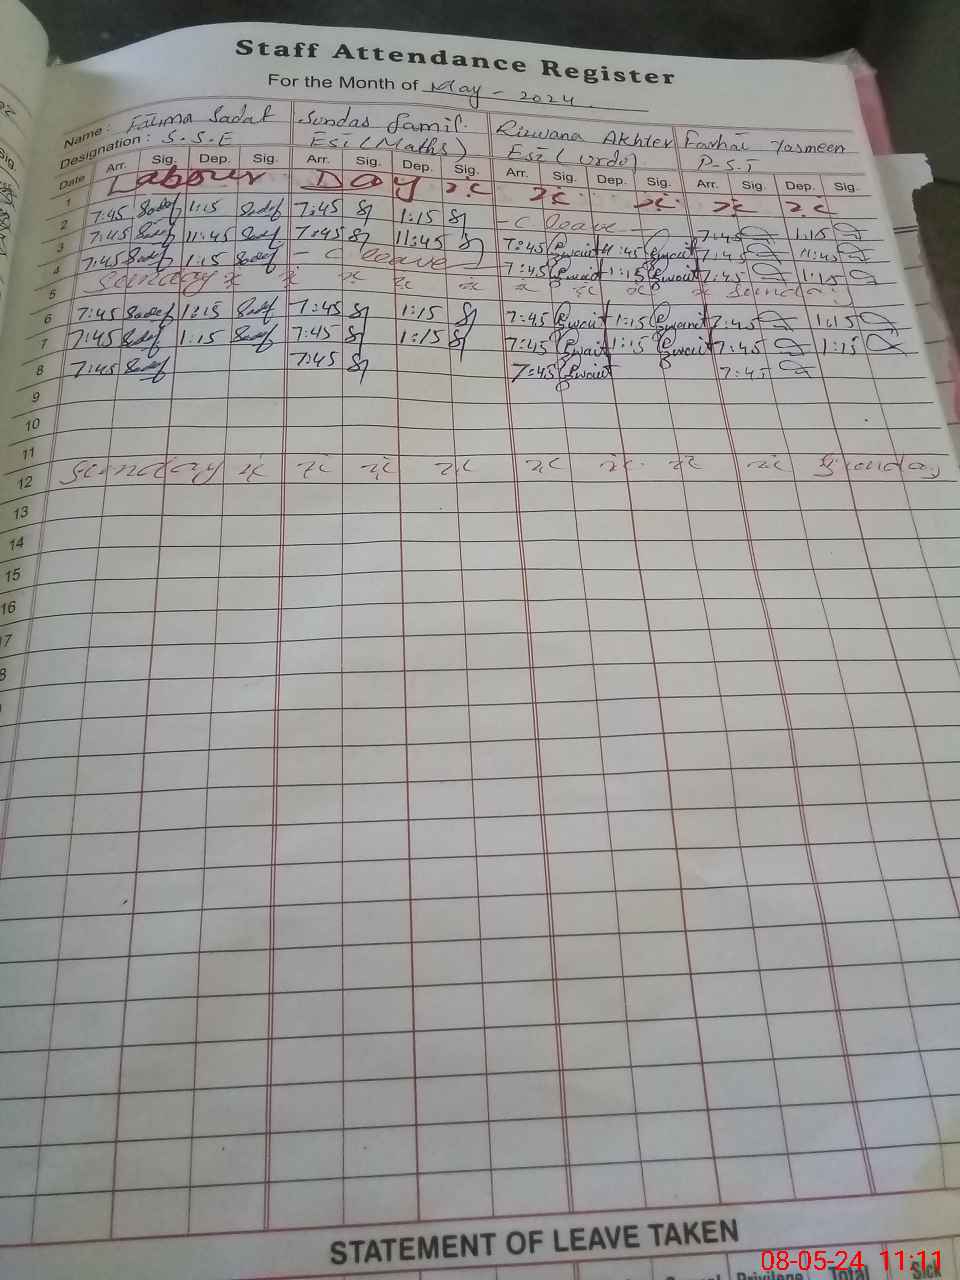 Staff Attendance Register
For the Month of May - 2024
Name: Fatima Sadaf Sundas Jamil. Rizwana Akhter Farhat Yasmeen
Designation: S.S.E Esi (Maths) Esi (Urdo) P-S.T
Date Arr. Sig. Dep. Sig. Arr. Sig. Dep. Sig. Arr. Sig. Dep. Sig. Arr. Sig. Dep. Sig.
1 Labour Day
2 7:45 Sadaf 1:15 Sadaf 7:45 1:15 - C leave - 7:45 1:15
3 7:45 Sadaf 11:45 Sadaf 7:45 11:45 7:45 11:45 7:45 11:45
4 7:45 Sadaf 1:15 Sadaf - C leave - 7:45 1:15 7:45 1:15
5 Sunday Sunday
6 7:45 Sadaf 1:15 Sadaf 7:45 1:15 7:45 1:15 7:45 1:15
7 7:45 Sadaf 1:15 Sadaf 7:45 1:15 7:45 1:15 7:45 1:15
8 7:45 Sadaf 7:45 7:45 7:45
9
10
11
12 Sunday Sunday
13
14
15
16
7
8
STATEMENT OF LEAVE TAKEN
Privilege Total Sick
08-05-24 11:11